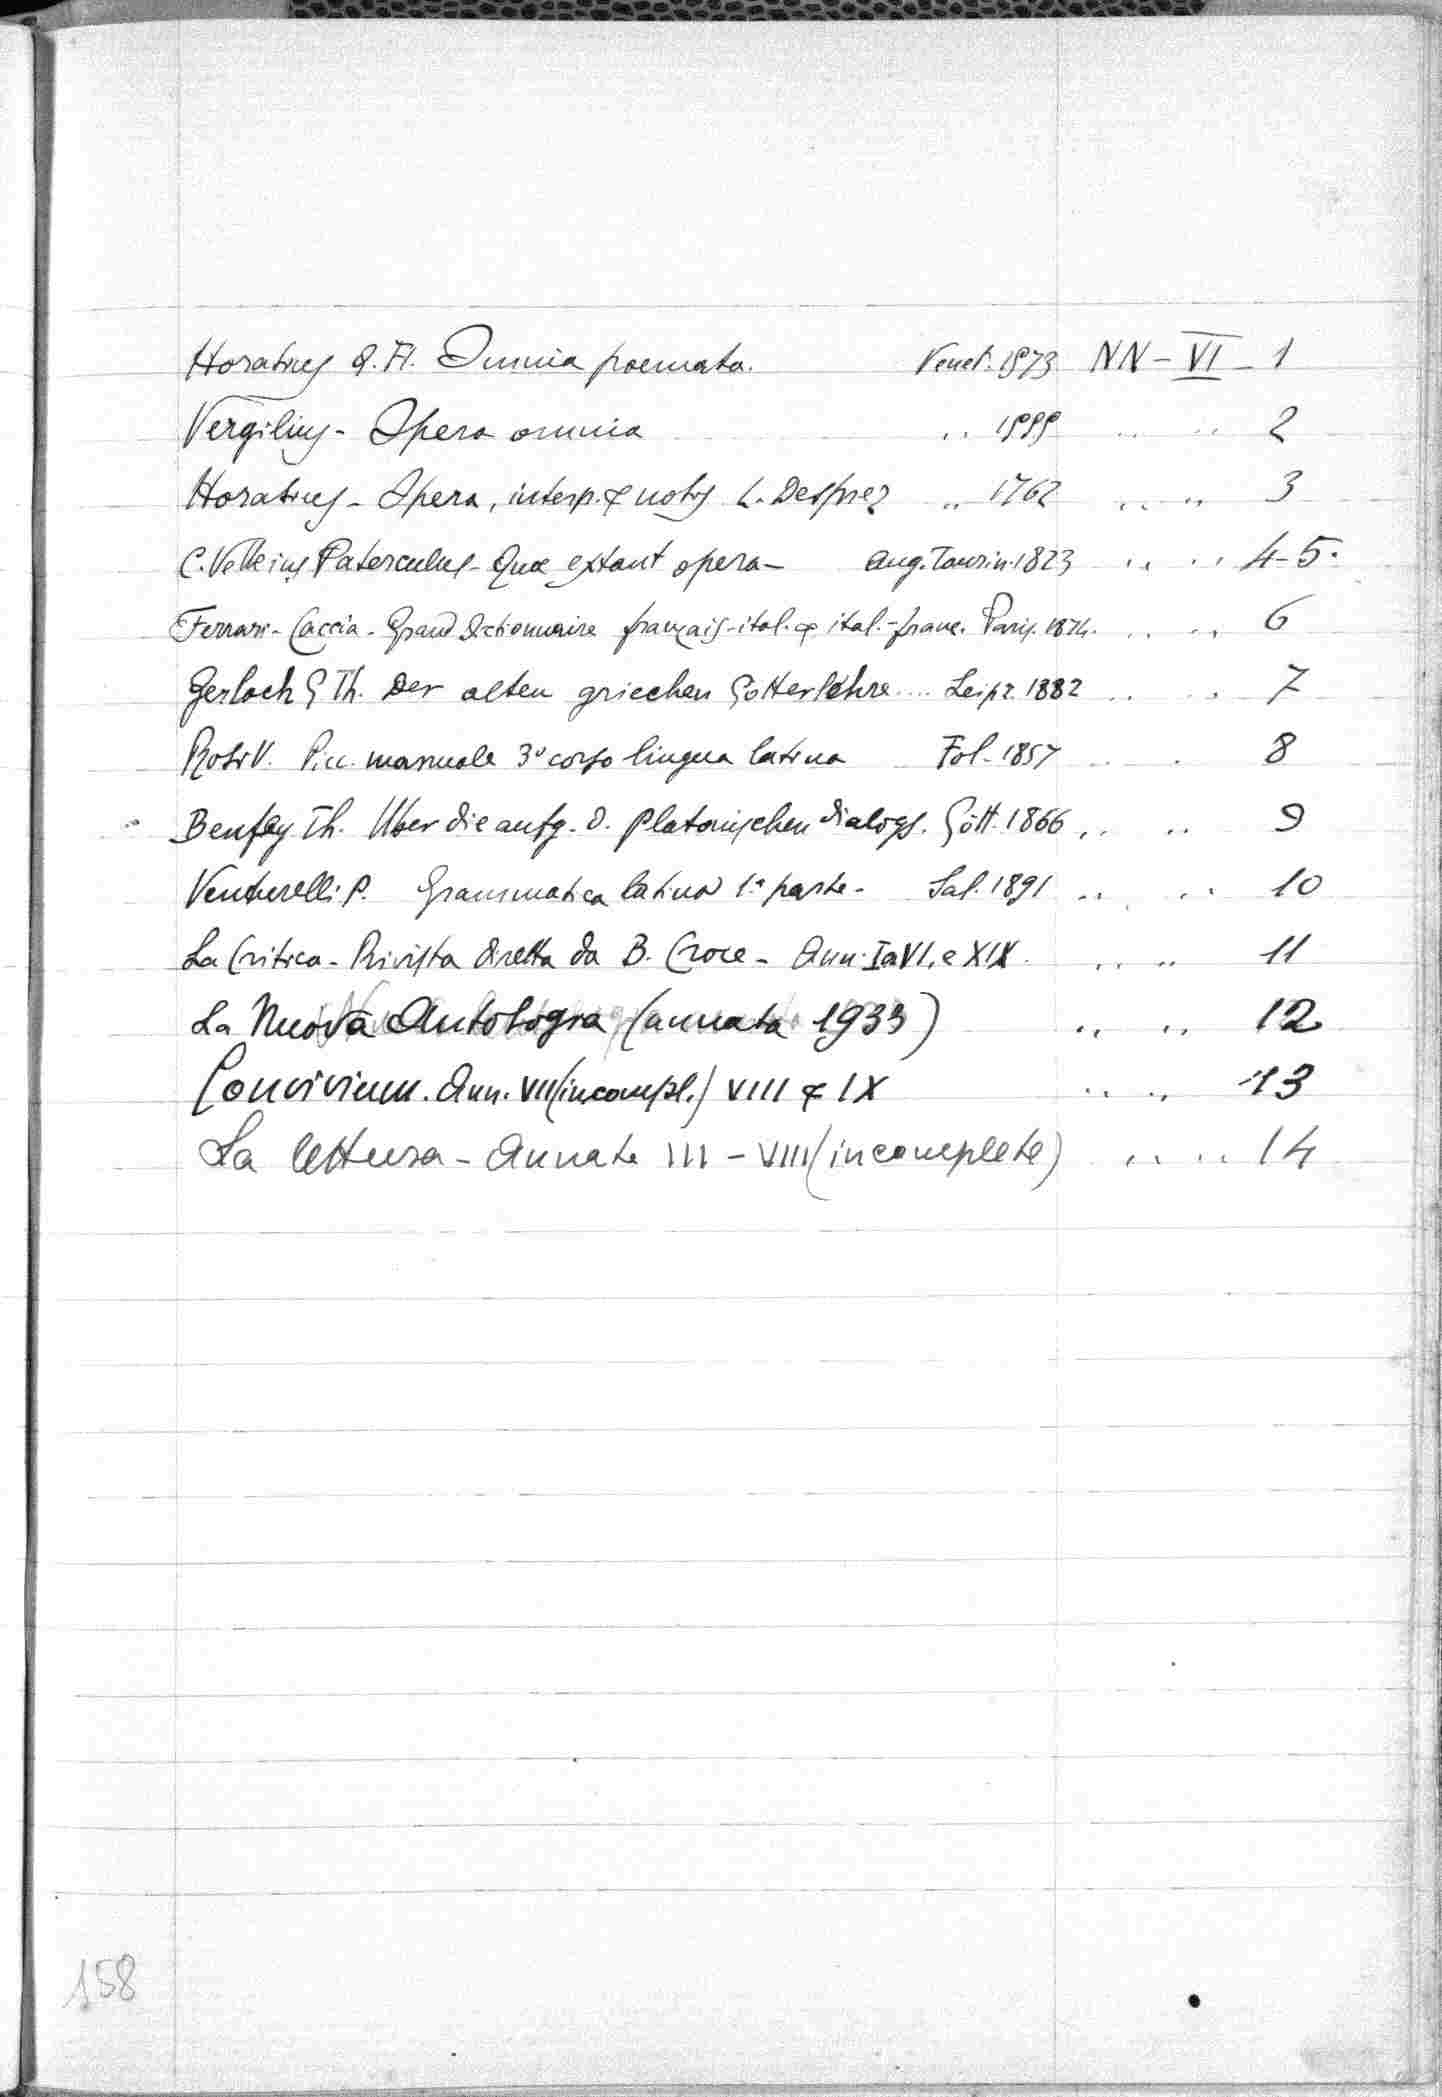 Horatius Q. Fl. Omnia poemata. Venet. 1873 NN - VI - 1
Vergilius - Opera omnia " 1888 " " 2
Horatius - Opera, interp. & notis L. Desprez " 1762 " " 3
C. Velleius Paterculus - Quæ extant opera - Aug. Taurin. 1823 " " 4-5.
Ferrari-Caccia - Grand Dictionnaire français-ital. & ital.-franc. Paris. 1874. " " 6
Gerlach G Th. Der alten griechen Gotterlehre .... Leipz. 1882 " " 7
V. Picc. manuale 3º corso lingua latina 1857 " " 8
Benfey Th. Uber die aufg. d. platonischen dialogs. Gött. 1866 " " 9
Venturelli P. Grammatica latina 1ª parte - Sal. 1891 " " 10
La Critica - Rivista diretta da B. Croce - Ann. I a VI, e XIX. " " 11
La Nuova Antologia (annata 1933) " " 12
Convivium. Ann. VII (incompl.) VIII & IX " " 13
La lettura - Annate III - VIII (incomplete) " " 14
158